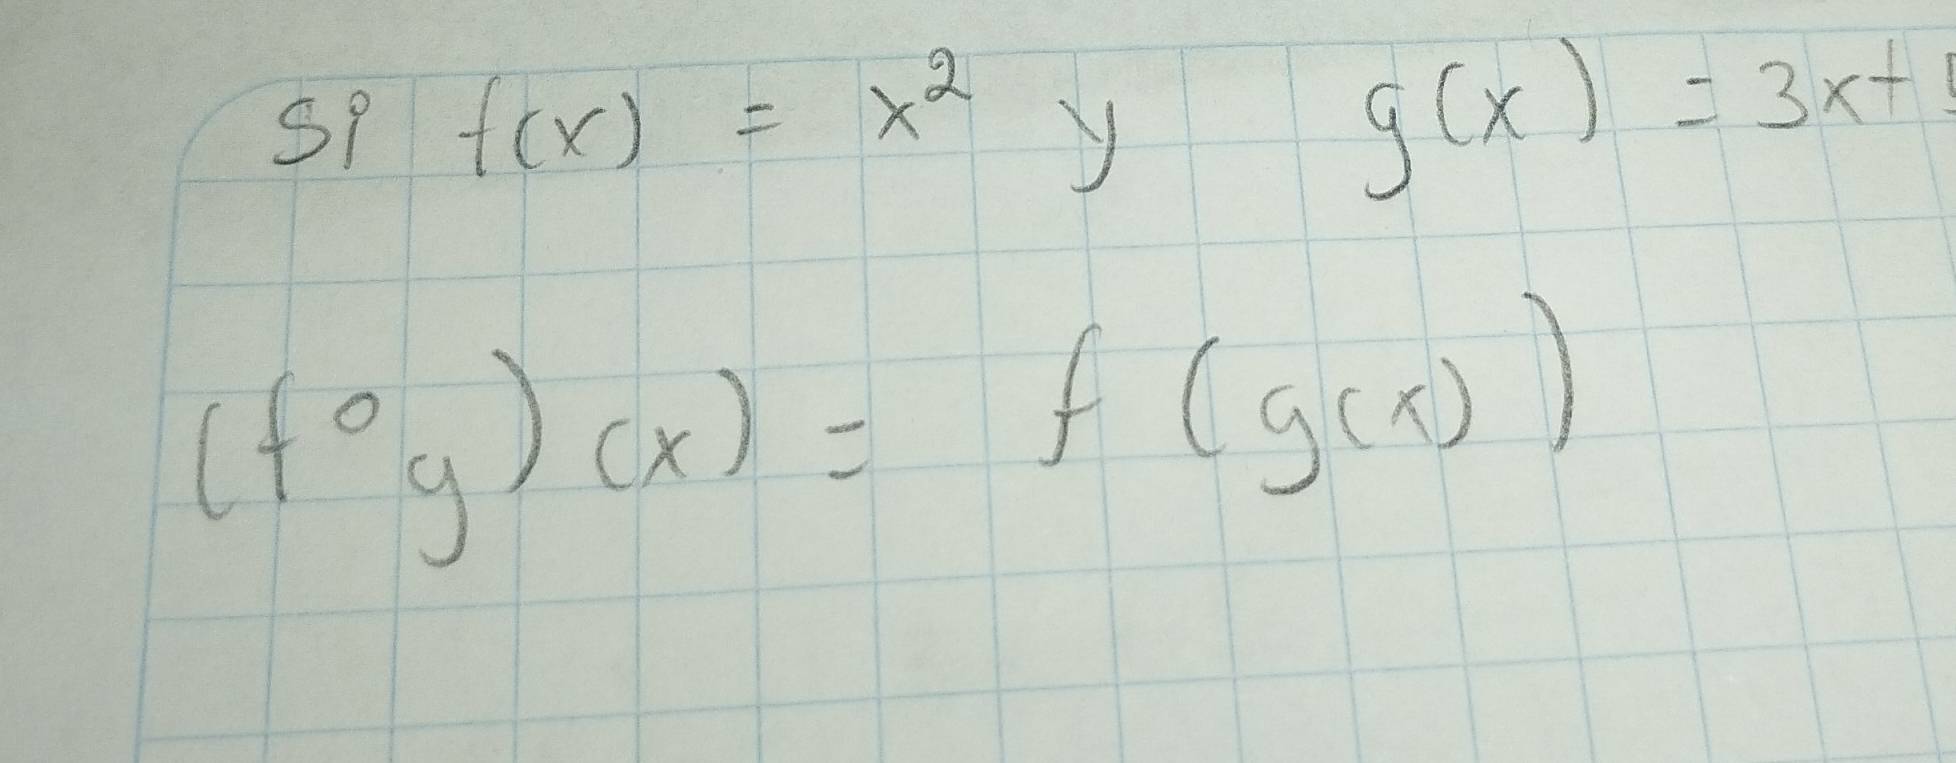 Si f(x) = x² y g(x) = 3x+
(f°g)(x) = f(g(x))